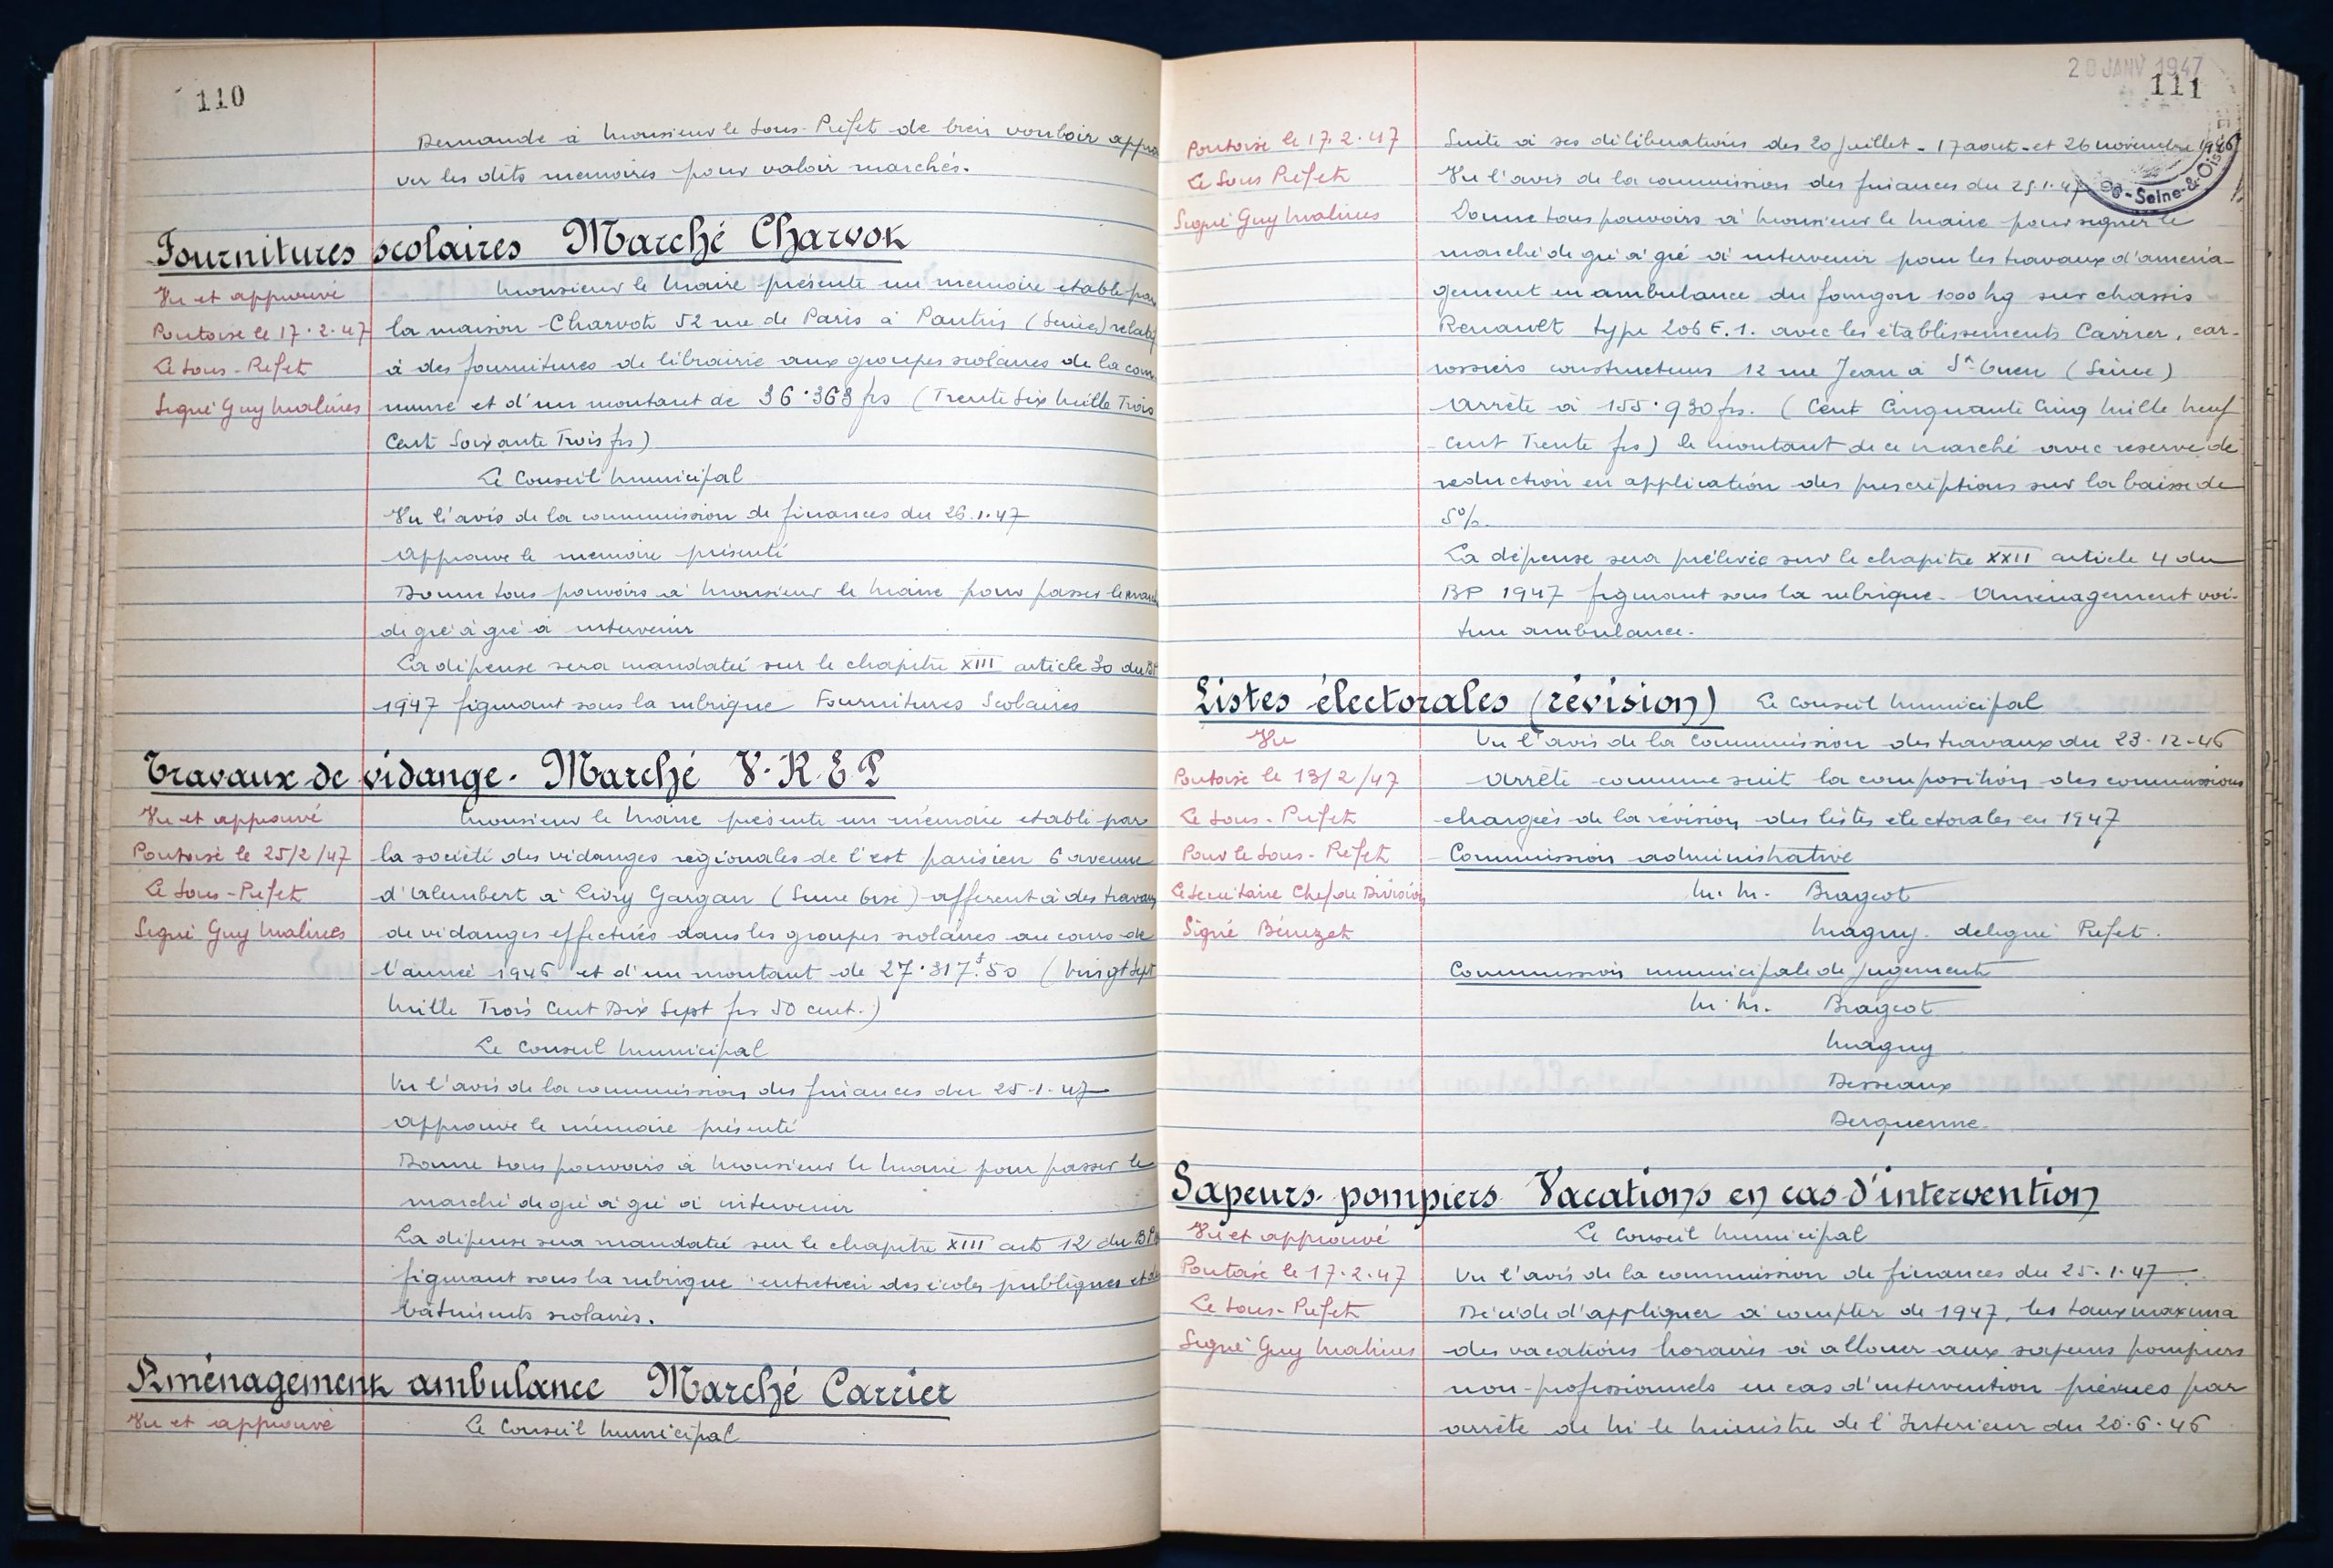 110
Demande à Monsieur le Sous-Préfet de bien vouloir appro
ver les dits mémoires pour valoir marchés.
Fournitures scolaires Marché Charvok
Vu et approuvé
Pontoise le 17.2.47
Le Sous-Préfet
Signé Guy Malines
Monsieur le Maire présente un mémoire établi par
la maison Charvot 52 rue de Paris à Pantin (Seine) relatif
à des fournitures de librairie aux groupes scolaires de la com
mune et d'un montant de 36.363 frs (Trente Six Mille Trois
Cent Soixante Trois frs)
Le Conseil Municipal
Vu l'avis de la commission de finances du 26.1.47
Approuve le mémoire présenté
Donne tous pouvoirs à Monsieur le Maire pour passer le march
de gré à gré à intervenir
La dépense sera mandatée sur le chapitre XIII article 30 du BP
1947 figurant sous la rubrique Fournitures Scolaires
Travaux de vidange. Marché V.R.E.P
Vu et approuvé
Pontoise le 25/2/47
Le Sous-Préfet
Signé Guy Malines
Monsieur le Maire présente un mémoire établi par
la société des vidanges régionales de l'est parisien 6 avenue
d'Alembert à Livry Gargan (Seine Oise) afférent à des travaux
de vidanges effectués dans les groupes scolaires au cours de
l'année 1946 et d'un montant de 27.317f.50 (Vingt Sept
Mille Trois Cent Dix Sept frs 50 cent.)
Le Conseil Municipal
Vu l'avis de la commission des finances du 25.1.47
Approuve le mémoire présenté
Donne tous pouvoirs à Monsieur le Maire pour passer le
marché de gré à gré à intervenir
La dépense sera mandatée sur le chapitre XIII art 12 du BP
figurant sous la rubrique : entretien des écoles publiques et des
bâtiments scolaires.
Aménagement ambulance Marché Carrier
Vu et approuvé
Le Conseil Municipal
20 JANV 1947
111
Seine-&-Oise
Pontoise le 17.2.47
Le Sous Préfet
Signé Guy Malines
Suite à ses délibérations des 20 Juillet - 17 aout - et 26 novembre 1946
Vu l'avis de la commission des finances du 25.1.47
Donne tous pouvoirs à Monsieur le Maire pour signer le
marché de gré à gré à intervenir pour les travaux d'aména-
gement en ambulance du fourgon 1000 kg sur chassis
Renault type 206 E.1. avec les établissements Carrier, car-
rossiers constructeurs 12 rue Jean à St Ouen (Seine)
Arrête à 155.930 frs. (Cent Cinquante Cinq Mille Neuf
Cent Trente frs) le montant de ce marché avec réserve de
réduction en application des prescriptions sur la baisse de
5%.
La dépense sera prélevée sur le chapitre XXII article 4 du
BP 1947 figurant sous la rubrique - Aménagement voi-
ture ambulance.
Listes électorales (révision) Le Conseil Municipal
Vu
Pontoise le 13/2/47
Le Sous-Préfet
Pour le Sous-Préfet
Le Secrétaire Chef de Division
Signé Bénezet
Vu l'avis de la Commission des travaux du 23-12-46
Arrête comme suit la composition des commissions
chargées de la révision des listes électorales en 1947
Commission administrative
M.M. Brageot
Magny. délégué Préfet.
Commission municipale de jugement
M.M. Brageot
Magny
Desseaux
Derquenne.
Sapeurs-pompiers Vacations en cas d'intervention
Vu et approuvé
Pontoise le 17.2.47
Le Sous-Préfet
Signé Guy Malines
Le Conseil Municipal
Vu l'avis de la commission de finances du 25.1.47
Décide d'appliquer à compter de 1947, les taux maxima
des vacations horaires à allouer aux sapeurs pompiers
non-professionnels en cas d'intervention prévues par
arrête de M le Ministre de l'Intérieur du 20.6.46